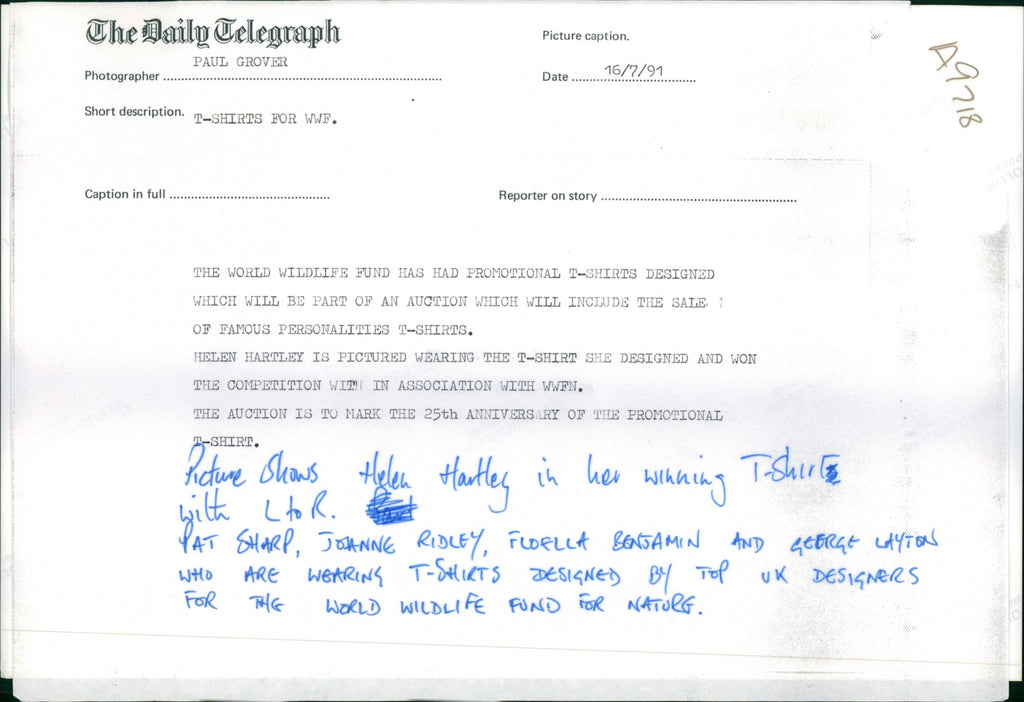 The Daily Telegraph
Picture caption.
PAUL GROVER
Photographer
Date 16/7/91
A9718
Short description. T-SHIRTS FOR WWF.
Caption in full
Reporter on story
THE WORLD WILDLIFE FUND HAS HAD PROMOTIONAL T-SHIRTS DESIGNED
WHICH WILL BE PART OF AN AUCTION WHICH WILL INCLUDE THE SALE
OF FAMOUS PERSONALITIES T-SHIRTS.
HELEN HARTLEY IS PICTURED WEARING THE T-SHIRT SHE DESIGNED AND WON
THE COMPETITION WITH IN ASSOCIATION WITH WWFN.
THE AUCTION IS TO MARK THE 25th ANNIVERSARY OF THE PROMOTIONAL
T-SHIRT.
Picture Shows Helen Hartley in her winning T-Shirt
with L to R.
PAT SHARP, JOANNE RIDLEY, FLOELLA BENJAMIN AND GEORGE LAYTON
WHO ARE WEARING T-SHIRTS DESIGNED BY TOP UK DESIGNERS
FOR THE WORLD WILDLIFE FUND FOR NATURE.